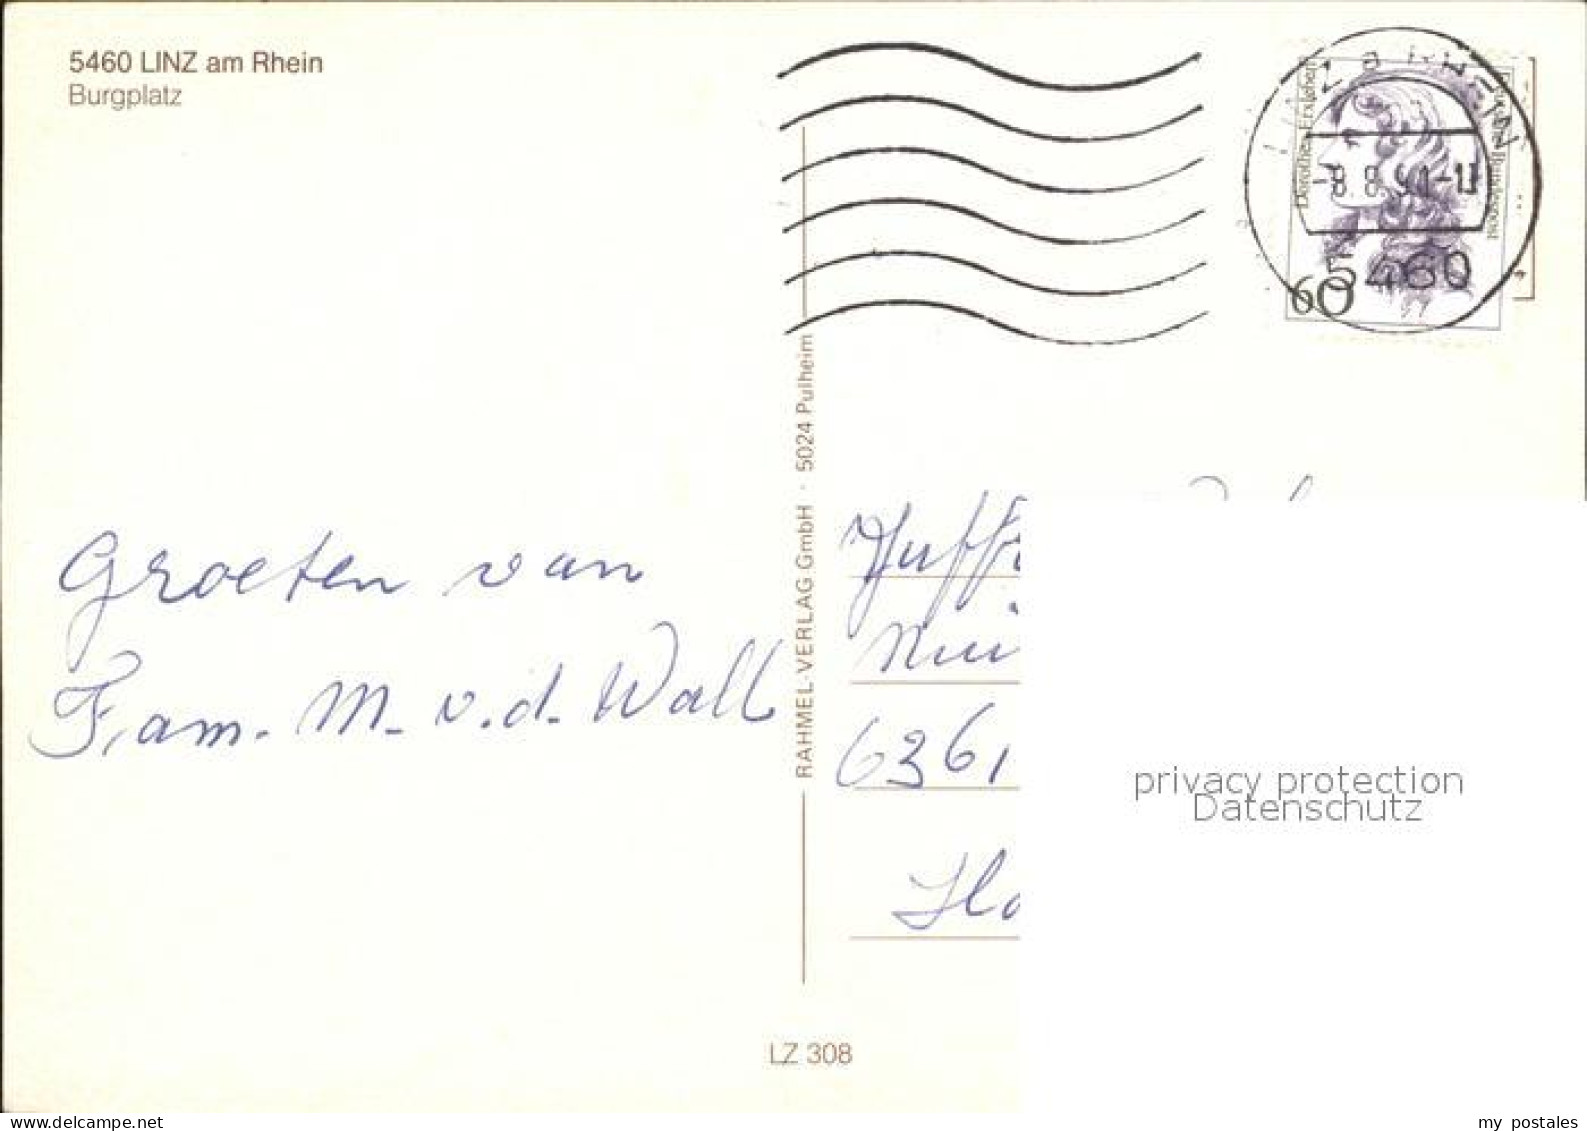 5460 LINZ am Rhein
Burgplatz
Dorothea Erxleben
Deutsche Bundespost
60
LINZ a RHEIN
-8.8.91-11
5460
RAHMEL-VERLAG GmbH · 5024 Pulheim
Groeten van
Fam. M. v.d. Wall
Juff.
6361
privacy protection
Datenschutz
LZ 308
delcampe.net
my postales